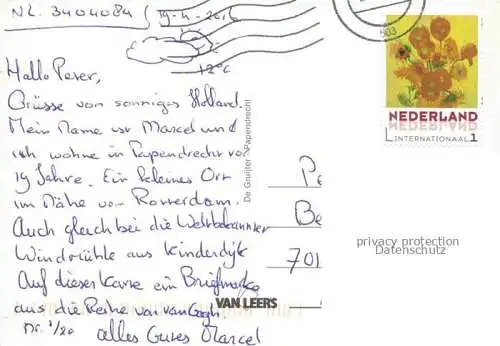 NL. 3404084 / 19-4-2016
+2°C
Hallo Peter,
Grüsse von sonniges Holland.
Mein Name ist Marcel und
ich wohne in Papendrecht vor
19 Jahre. Ein kleines Ort
im Nähe von Rotterdam.
Auch gleich bei die Weltbekannter
Windmühle aus Kinderdijk
Auf dieser Karte ein Briefmarke
aus die Reihe von van Gogh.
Nr. 1/20 alles Gutes Marcel
De Gruijter - Papendrecht
VAN LEERS
503
NEDERLAND
INTERNATIONAAL 1
Pe
Be
701
privacy protection
Datenschutz